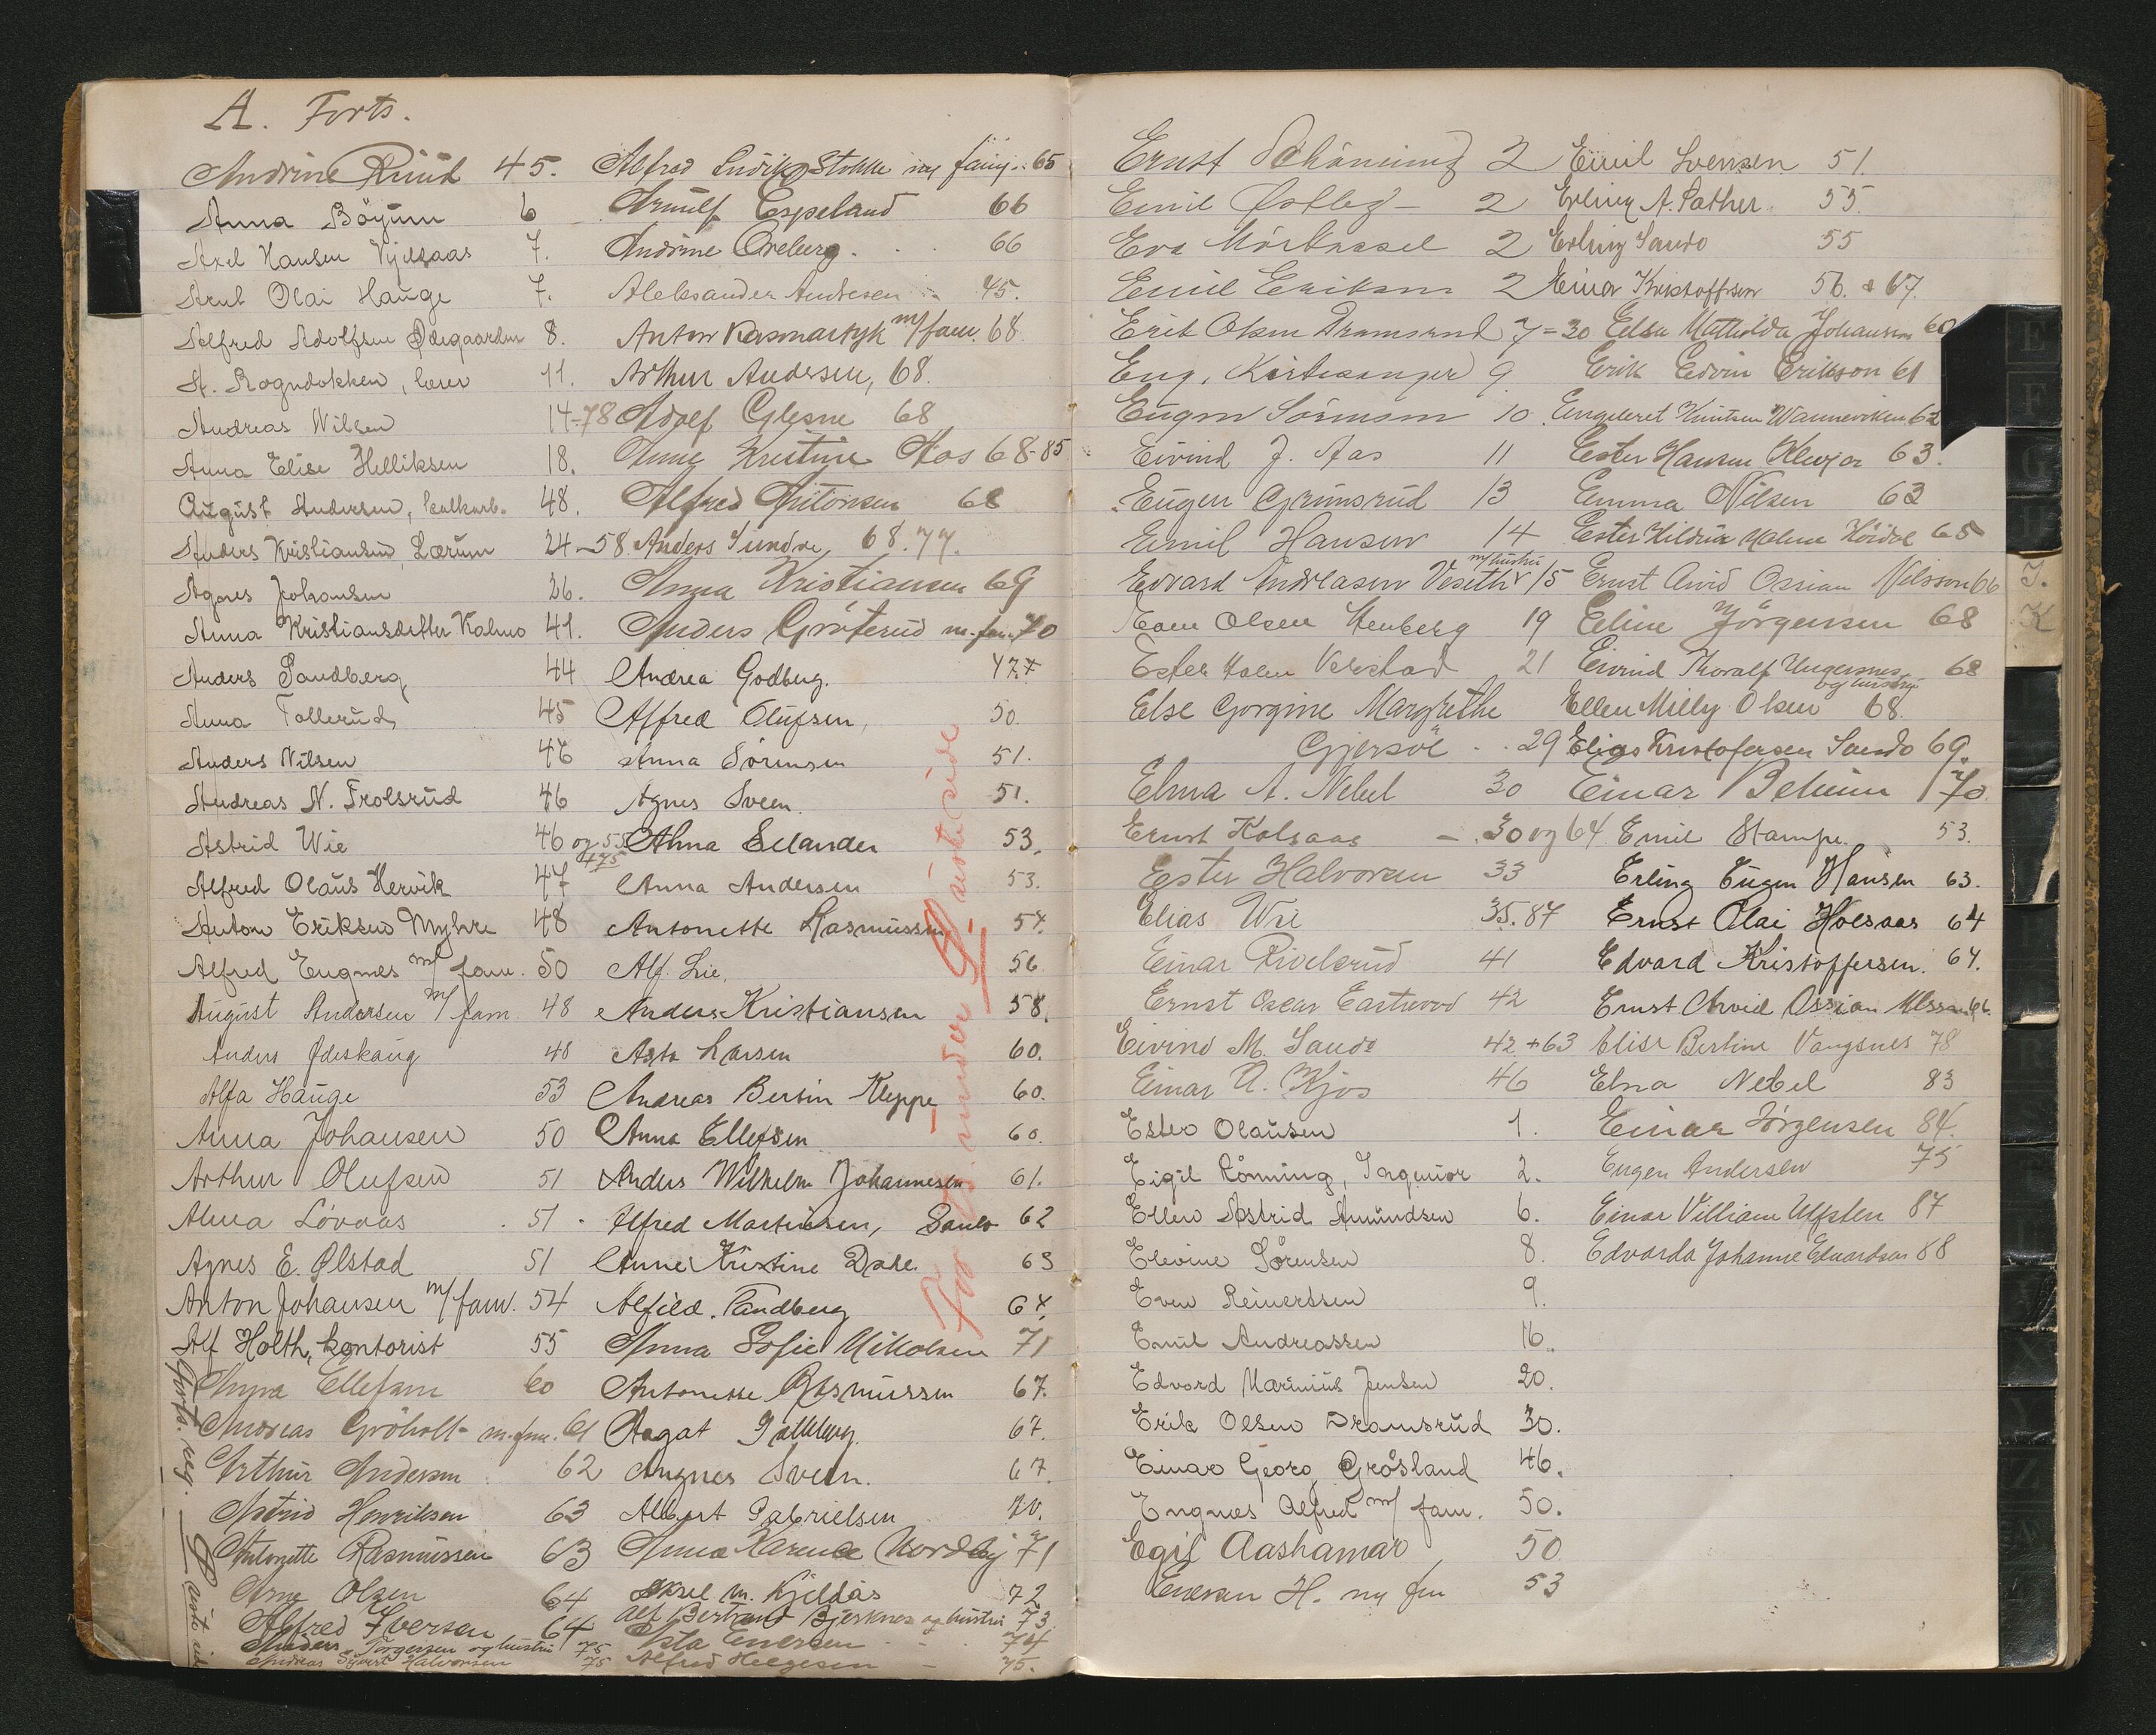 A. Forts.
Andrine Ruud 45.
Anna Böyum 6
Axel Hansen 7.
Arnt Olai Hauge 7.
Alfred Adolfsen Ødegaarden 8.
A. Rogndokken, lærer 11.
Andreas Wilsen 14-78
Anna Elise Helliksen 18.
August Andersen, 48.
Anders Kristiansen, Lærum 24-58
Agnes Johansen 26.
Anna Kristiansdatter Kalmo 41.
Anders Sandberg 44
Anna Tollerud 45
Anders Nilsen 46
Andreas N. Trolsrud 46
Astrid Wie 46 og 55
+75
Alfred Olaus Hervik 47
Anton Eriksen Myhre 48
Alfred Engnes m/ fam. 50
August Andersen m/ fam 48
Anders Ødeskaug 48
Alfa Hauge 53
Anna Johansen 50
Arthur Olufsen 51
Alma Lövaas 51
Agnes E. Ølstad 51
Anton Johansen m/ fam. 54
Alf Holth, kontorist 55
Anna Ellefsen 60
Andreas Gröholt m. fam. 61
Arthur Andersen 62
Astrid Henriksen 63
Antonette Rasmussen 63
Arne Olsen 64
Alfred Iversen 64
Anders Torgersen og hustru 75
Andreas Sivert Halvorsen 75
Forts. neg. P siste side
Alfred Ludvig Stokke m/ 65
Arnulf Espeland 66
Andrine Oreberg. 66
Aleksander Andresen 45.
Anton Kasmartyk m/ fam. 68.
Arthur Andersen, 68.
Adolf Glesne 68
Anne Kristine Aas 68-85
Alfred Antonsen 68
Anders Sundre, 68.77.
Anna Kristiansen 69
Anders Gröterud m. fam. 70
Andrea Godberg.
Alfred Olufsen, 50.
Anna Sörensen 51.
Agnes Sveen. 51.
Alma Selander 53.
Anna Andersen 53.
Antonette Rasmussen 57.
Alf. Lie. 56
Anders Kristiansen 58.
Asta Larsen 60.
Andreas Bertin Kleppe 60.
Anna Ellefsen 60.
Anders Wilhelm Johannesen 61.
Alfred Martinsen, Sando 62
Anne Kristine Dahl. 63
Alfild. Sandberg 64
Anna Sofie Nikolsen 71
Antonette Rasmussen 67.
Aagat 67.
Angnes Sveen. 67.
Albert Gabrielsen 70.
Anna Karense Nordby 71
Aksel m. Kjeldås 72
Alf Bertrand Bjerknes og hustru 73
Asta Enersen 74
Alfred Helgesen 75.
For A. under P siste side
Ernst Schöning 2
Emil Østby 2
Eva Mörknasel 2
Emil Eriksen 2
Erik Olsen Dramsrud 7=30
Eug. Kirkesanger 9
Eugen Sörensen 10.
Eivind J. Aas 11
Eugen Grimsrud 13
Emil Hansen 14
m/hustru
Edvard Andreasen Veseth 15
Even Olsen Stenberg 19
Ester Holm Verstad 21
Else Gorgine Margrethe
Gjersöe 29
Elna A. Nebel 30
Ernst Kolsaas 30 og 64
Ester Halvorsen 33
Elias Wie 35.87
Einar Rivelsrud 41
Ernst Oscar Eastwood 42
Eivind M. Sando 42+63
Einar A. Kjos 46
Ester Olausen 1.
Eigil Rönning, Ingeniör 2.
Ellen Astrid Amundsen 6.
Elevine Sörensen 8.
Even Reinertsen 9.
Emil Andreassen 16.
Edvard Marinius Jensen 20.
Erik Olsen Dramsrud 30.
Einar Georg Grösland 46.
Engnes Alfred m/ fam. 50.
Egil Aashamar, 50
Enersen H. 53
Emil Svensen 51.
Erling A. Sather. 55.
Erling Sando 55
Einar Kristoffersen 56. & 67.
Elsa Mathilda Johansen 60
Erik Edvin Erikson 61
Engebret Knutsen 62
Ester Hansen 63.
Emma Nilsen 63
Ester Hildur Malene Höidal 65
Ernst Arvid Ossian Nilsson 66
Eline Jörgensen 68
Eivind Thoralf Ungersnes 68
og hustru
Ellen Milly Olsen 68.
Elias Kristofersen Sando 69.
Einar Behum 70.
Emil Stampe. 53.
Erling Eugen Hansen 63.
Ernst Olai Holsaas 64
Edvard Kristoffersen. 64.
Ernst Arvid Ossian Nilsson 66.
Elise Bertine Vangsnes 78
Elna Nebel 83
Einar Jörgensen 84.
Eugen Andersen 75
Einar Villiam Ulfsten 87
Edvarda Johanne Edvardsen 88
E
F
G
H
J.
K